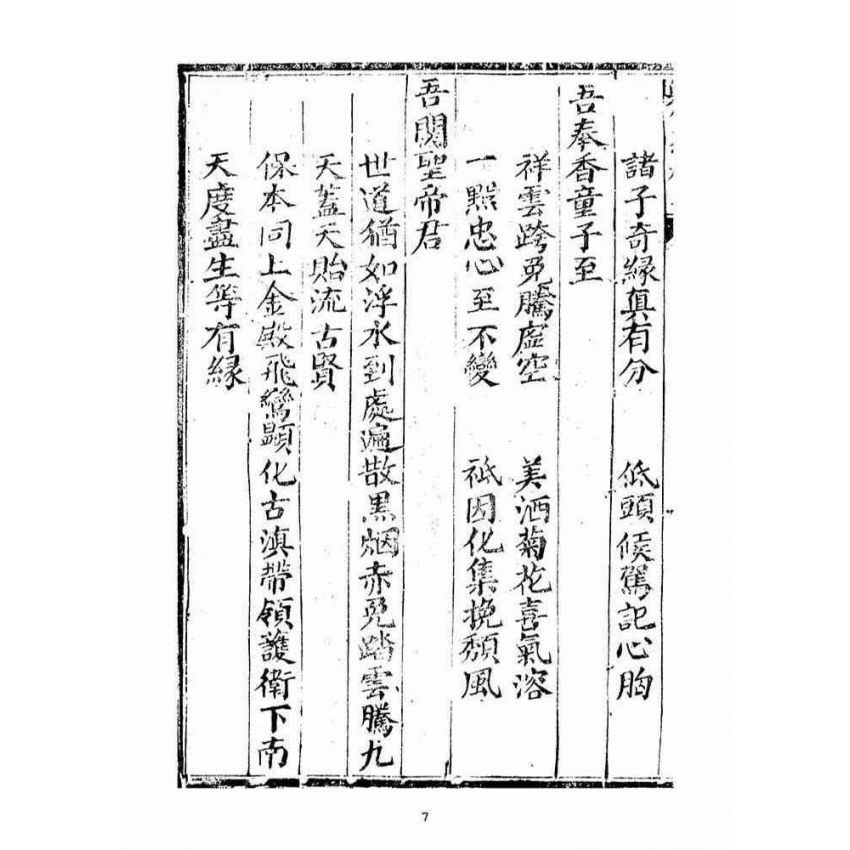 諸子奇緣真有分　低頭候駕記心胸
吾奉香童子至
祥雲跨兎騰虛空　美洒菊花喜氣溶
一點忠心至不變　祗因化集挽頹風
吾関聖帝君
世道猶如浮水到處遍散黑烟赤兎踏雲騰九
天蓋天貽流古賢
保本同上金殿飛鸞顯化古滇帶領護衛下南
天度盡生等有緣
7